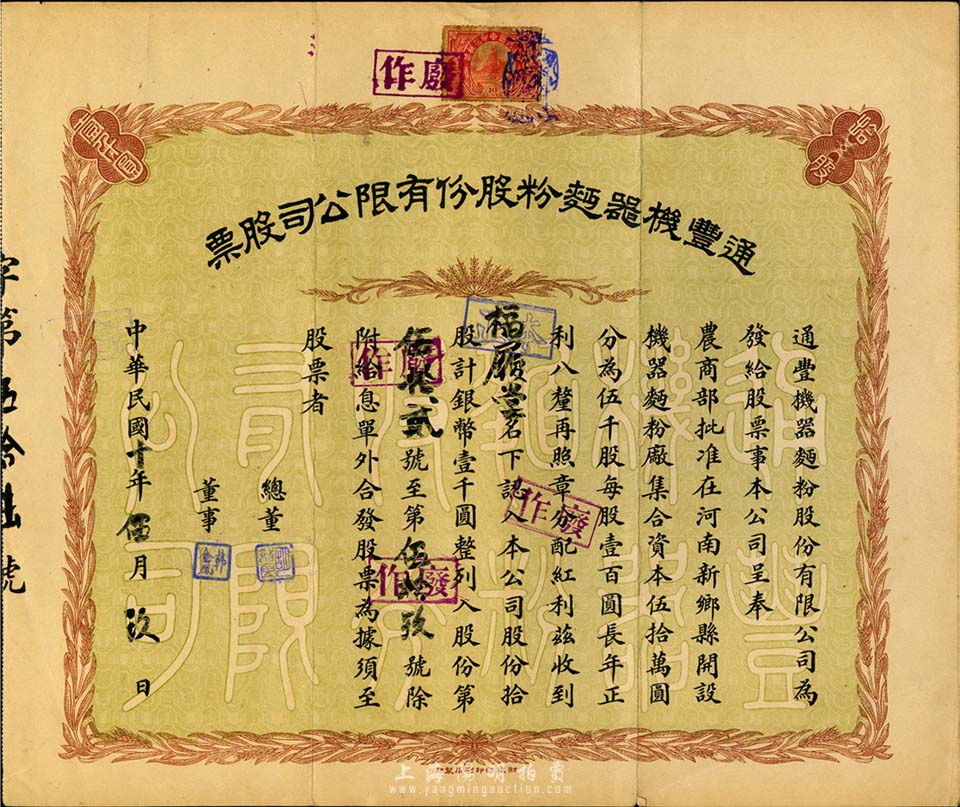 作廢
通豐機器麵粉股份有限公司股票
通豐機器麵粉股份有限公司為
發給股票事本公司呈奉
農商部批准在河南新鄉縣開設
機器麵粉廠集合資本伍拾萬圓
分為伍千股每股壹百圓長年正
利八釐再照章分配紅利茲收到
福 堂名下認入本公司股份拾
股計銀幣壹千圓整列入股份第
號至第 號除
附給息單外合發股票為據須至
股票者
總董
董事
中華民國十年伍月 日
字第伍拾 號
作廢
作廢
作廢
通豐機器麵粉有限公司
上海陽明拍賣
www.yangmingauction.com